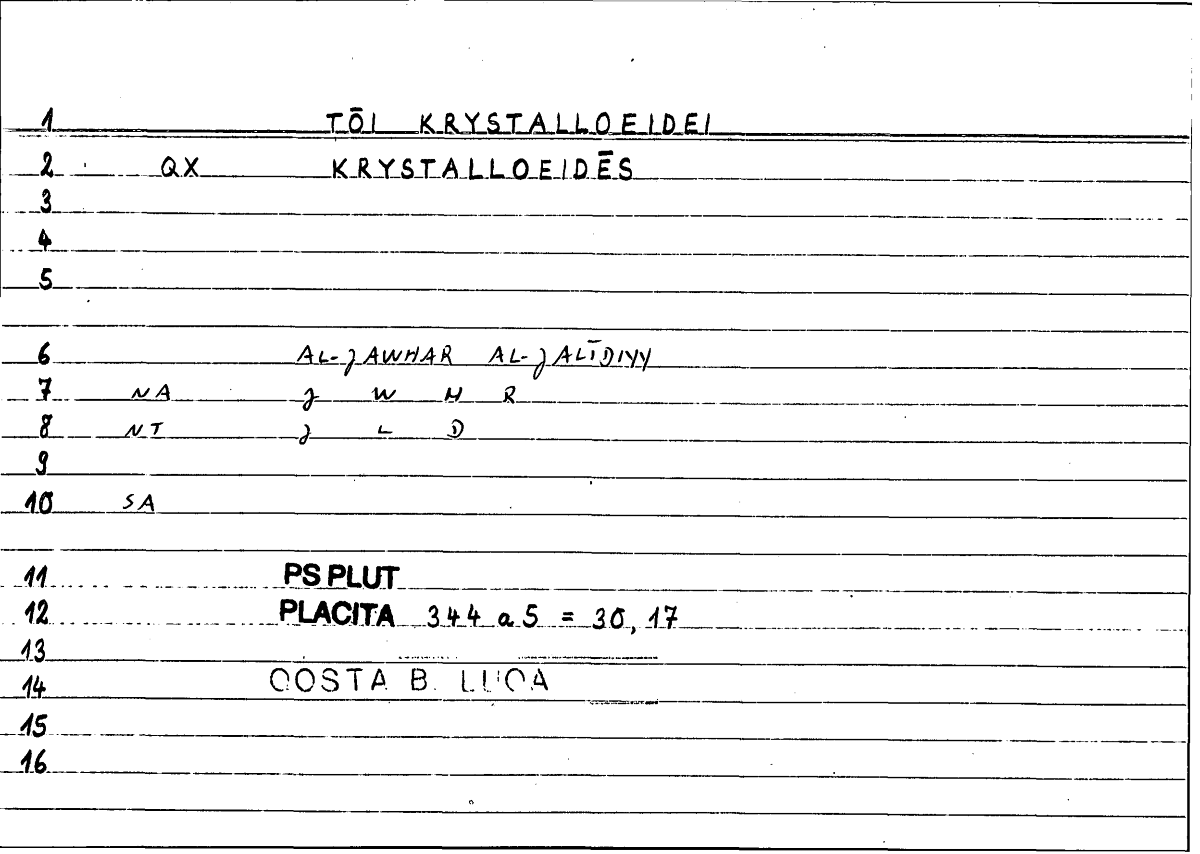 1 TŌI KRYSTALLOEIDEI
2 QX KRYSTALLOEIDĒS
3
4
5
6 AL-JAWHAR AL-JALĪDIYY
7 NA J W H R
8 NT J L D
9
10 SA
11 PS PLUT
12 PLACITA 344 a 5 = 30, 17
13
14 QOSTA B. LUQA
15
16